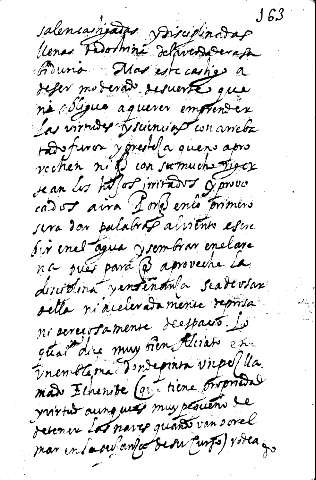 163
salen castigadas y disciplinadas
llenas de doctrina de verdadera sa
biduria. Mas este castigo a
de ser moderado de suerte que
no obligue a querer emprender
las virtudes y sciencias con arreba
tado furor y presteza que no apro
vechen ni q con su mucho rigor
sean los hijos irritados y provo
cados a ira Porq en lo primero
sera dar palabras al viento escre
bir en el agua y sembrar en el are
na pues para q aproveche la
disciplina y enseñanza se a de usar
della ni aceleradamente de prisa
ni perezosamente de espacio. Lo
qual dice muy bien Alciato en
un emblema donde pinta un pez lla
mado Echeneis (que tiene propriedad
y virtud aunque es muy pequeño de
detener las naves quando van por el
mar en la de su curso)